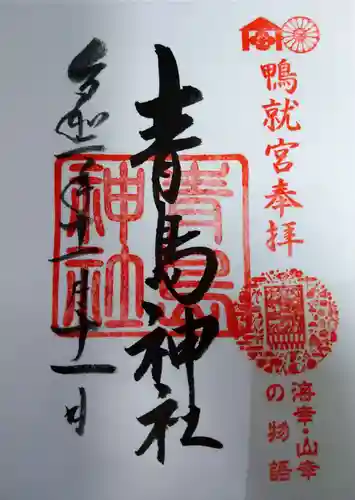 鴨就宮奉拝
海幸・山幸
の物語
青島神社
青島
神社
令和 年 月十一日